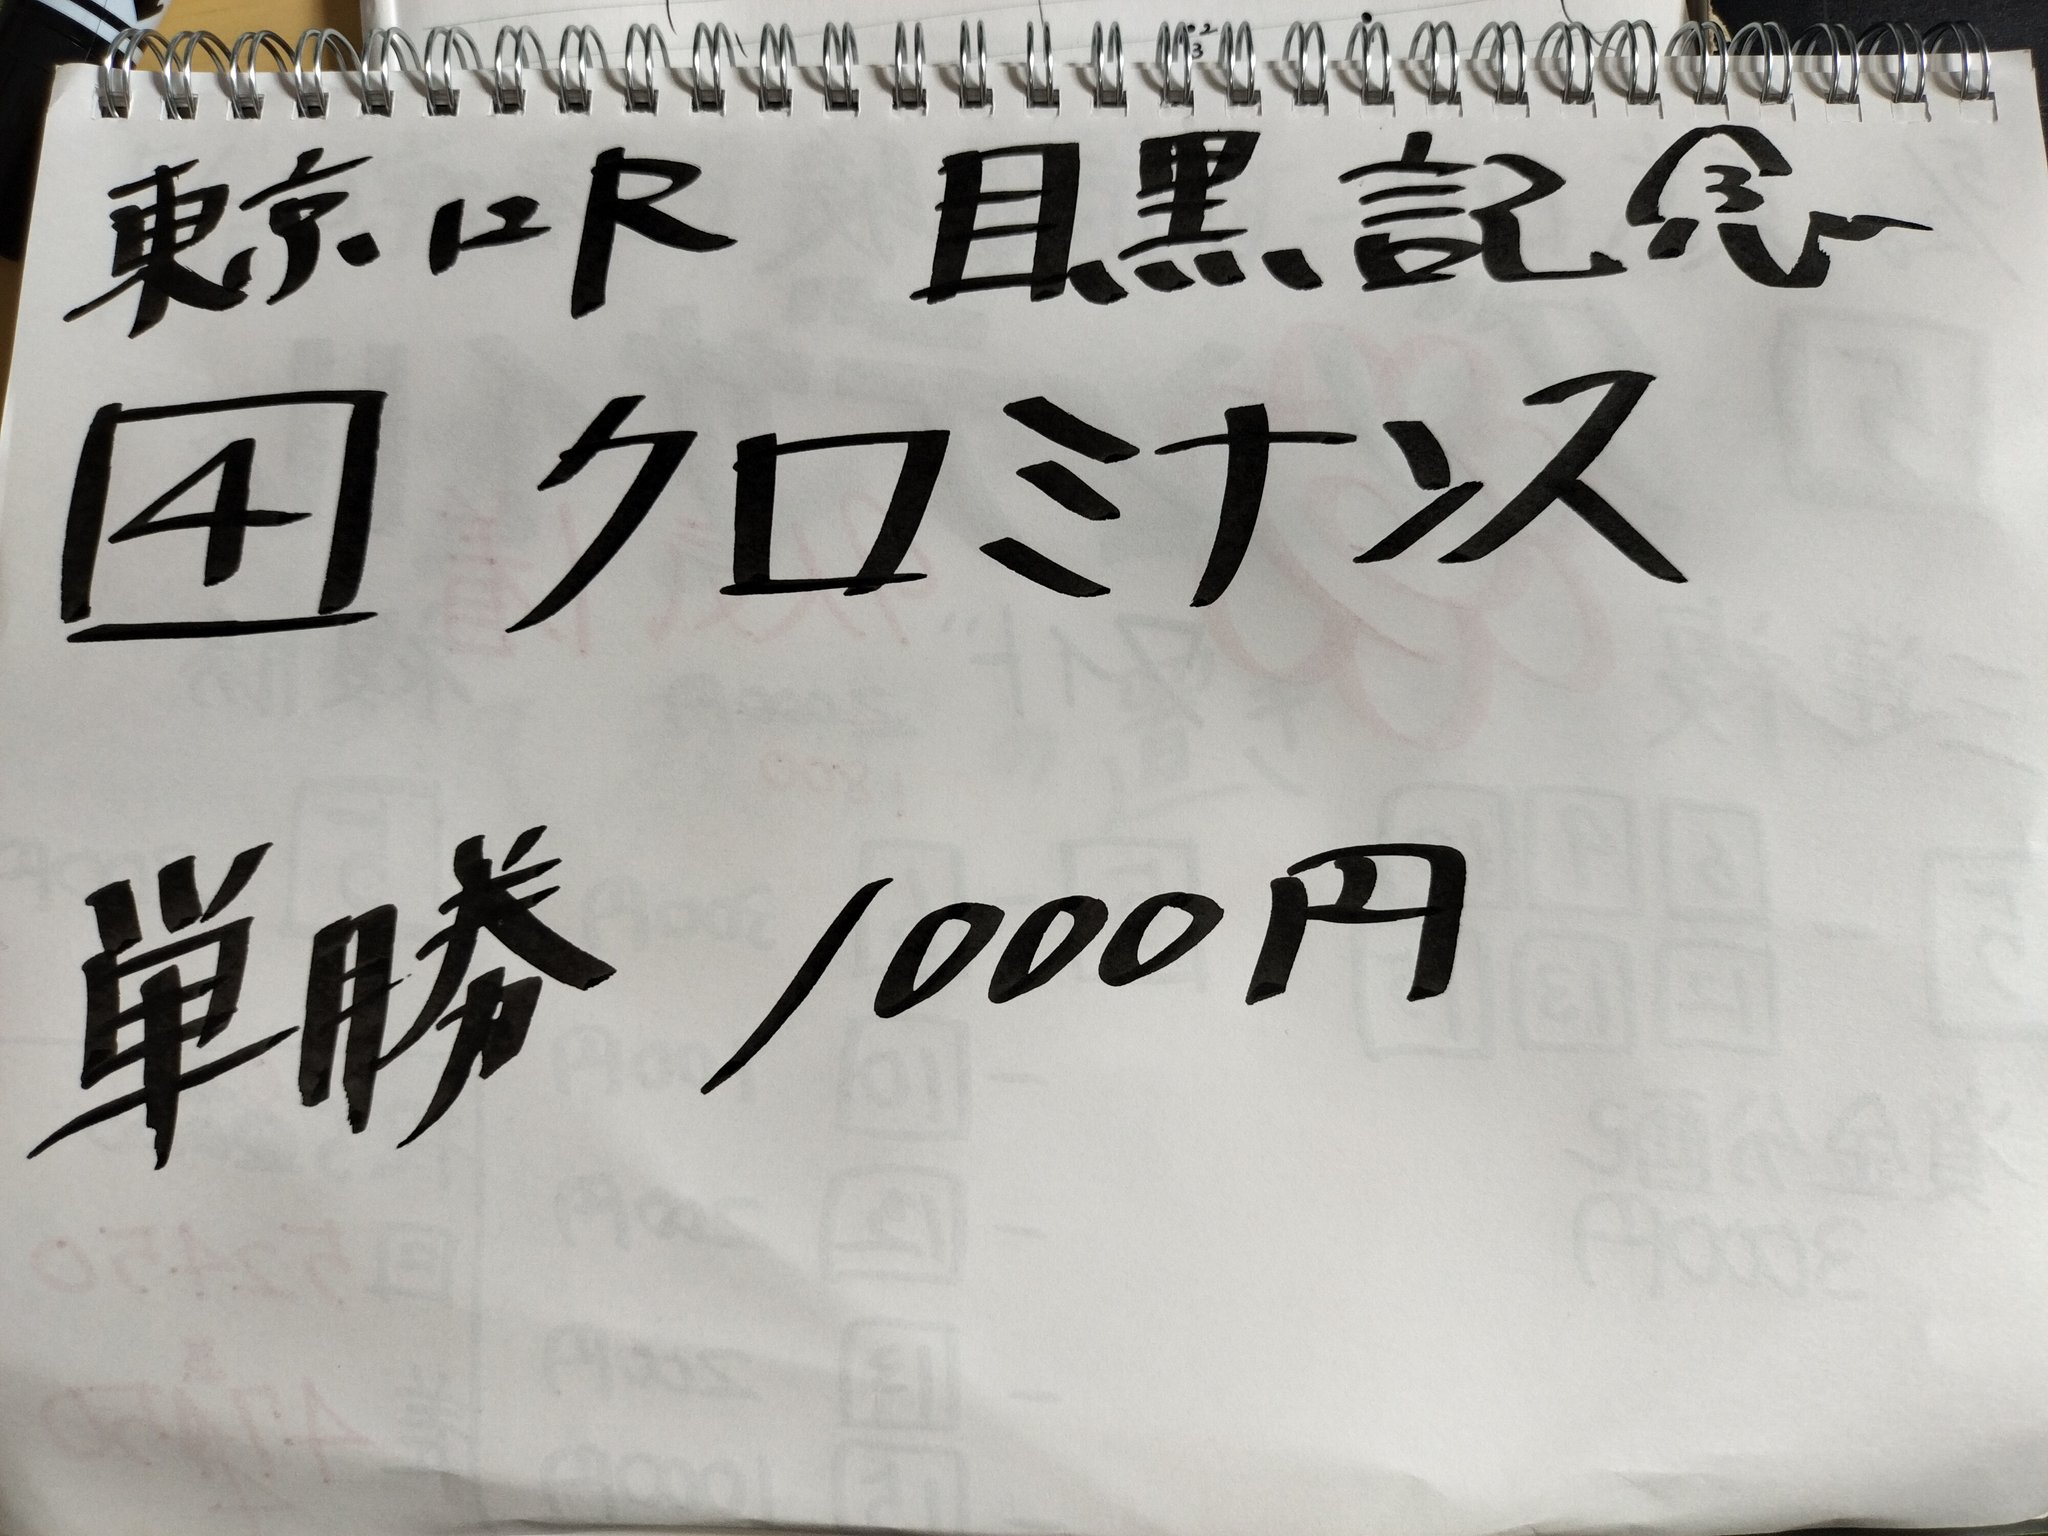 東京12R 目黒記念
4 クロミナンス
単勝 1000円